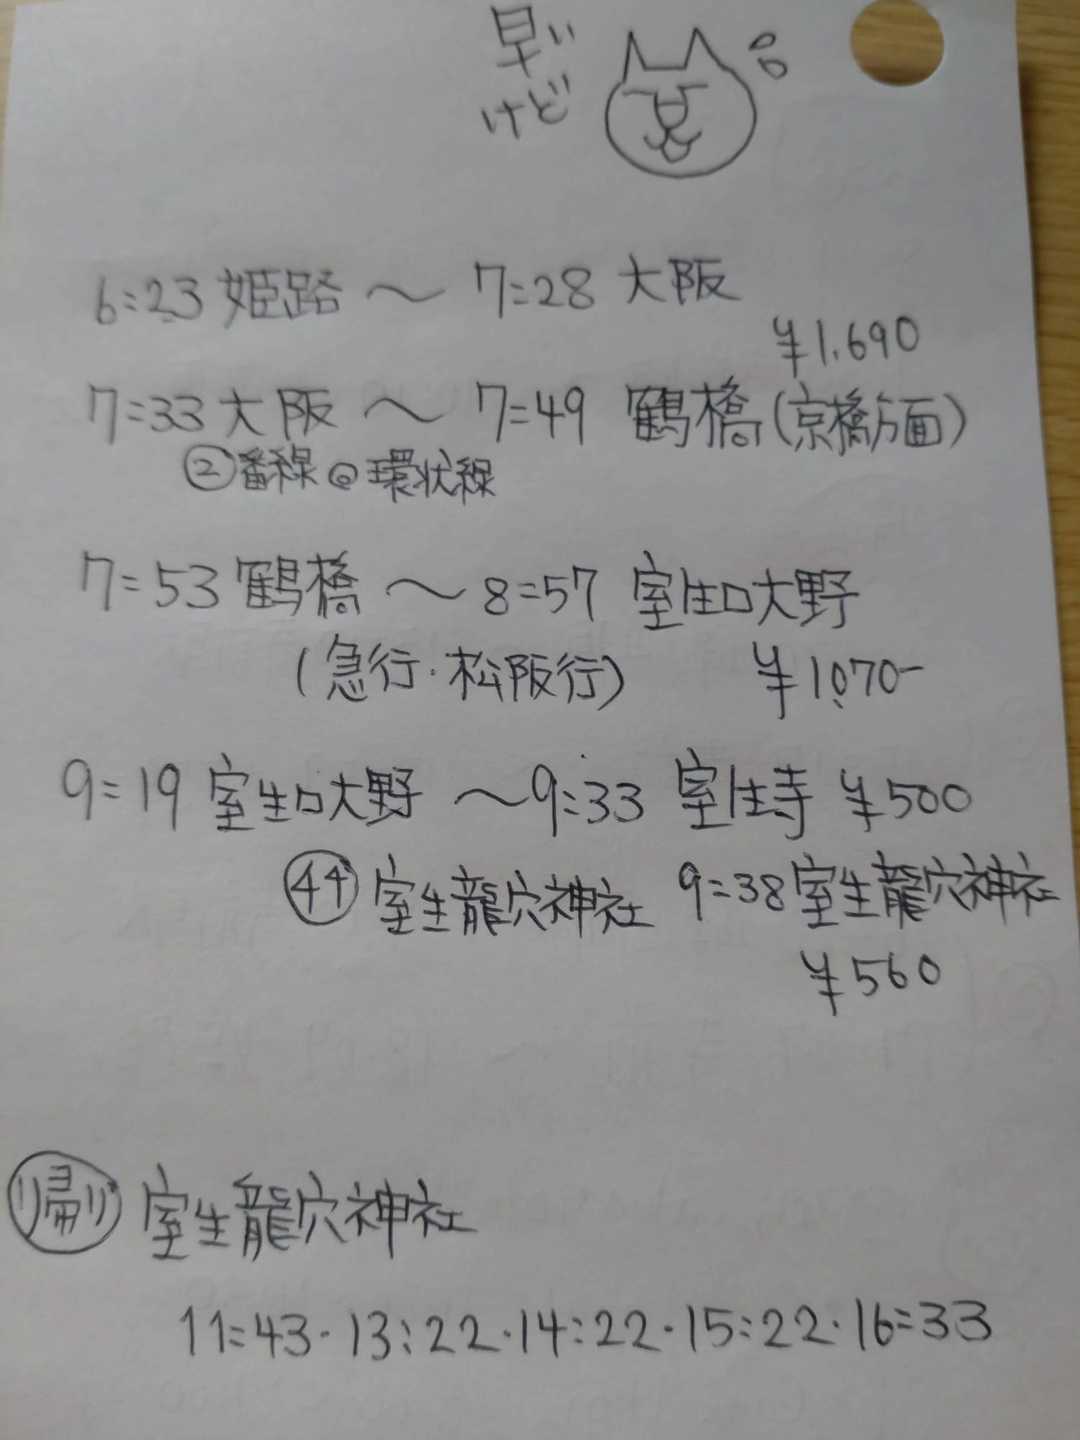 早い
けど
6:23 姫路 〜 7:28 大阪
¥1,690
7:33 大阪 〜 7:49 鶴橋(京橋方面)
②番線@環状線
7:53 鶴橋 〜 8:57 室生口大野
(急行・松阪行) ¥1,070-
9:19 室生口大野 〜 9:33 室生寺 ¥500
㊹ 室生龍穴神社 9:38 室生龍穴神社
¥560
帰り 室生龍穴神社
11:43・13:22・14:22・15:22・16:33